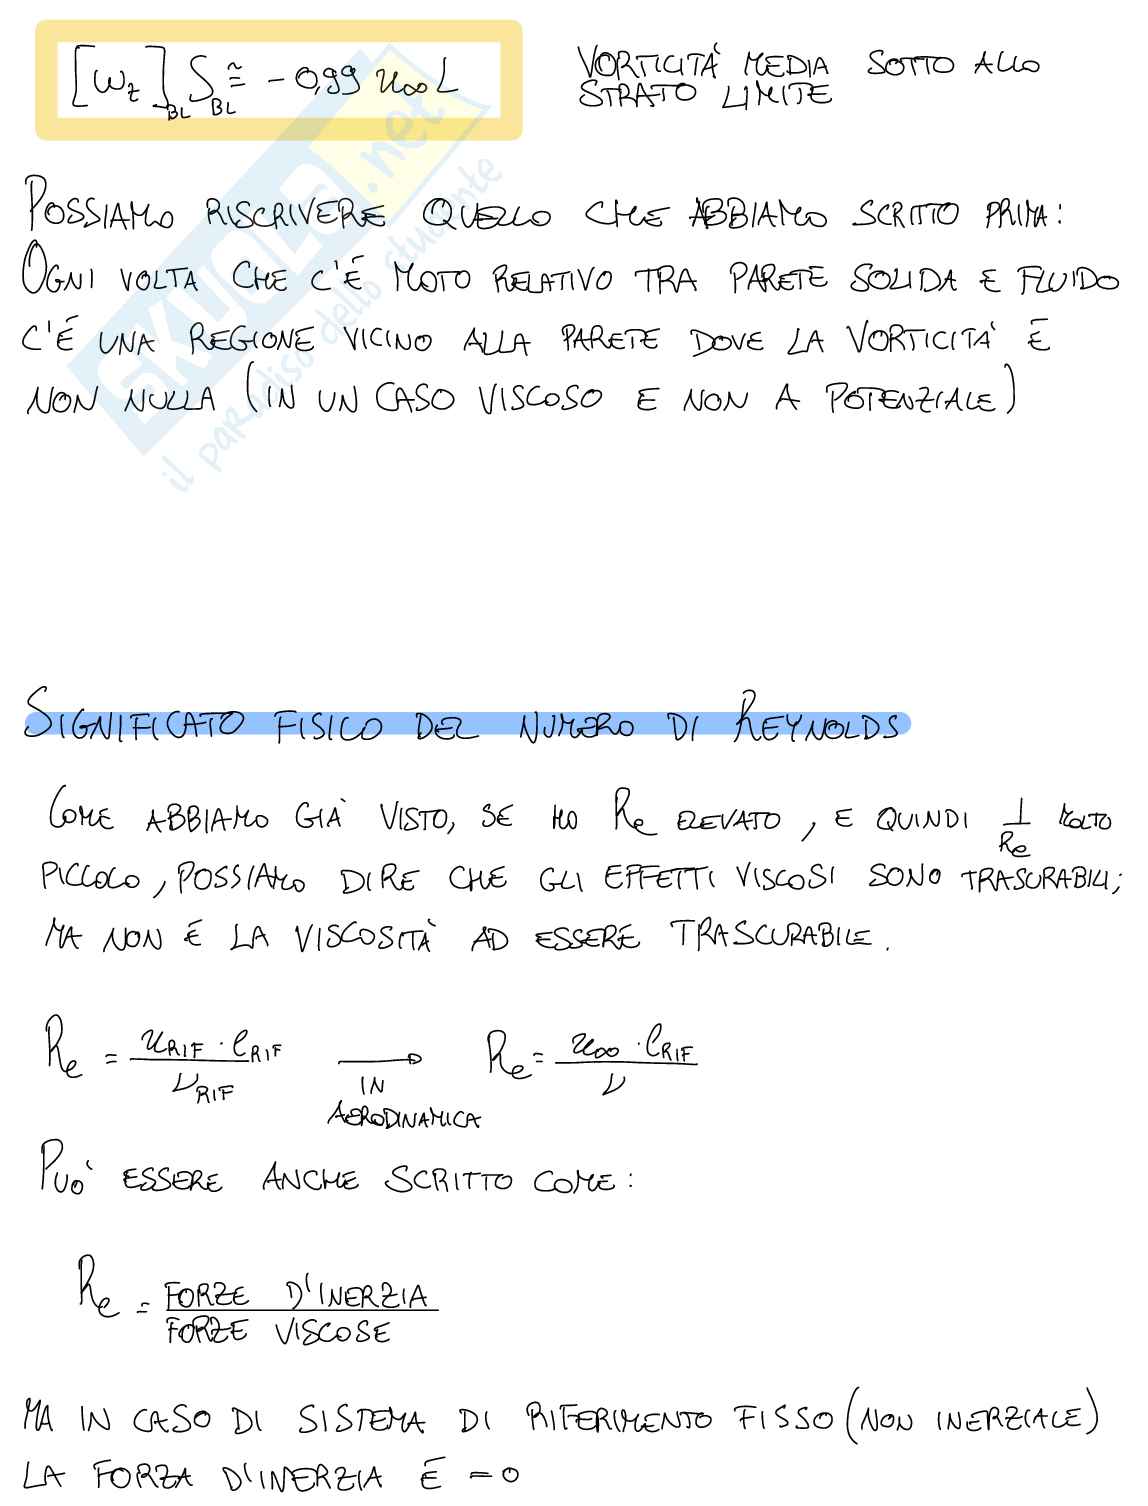 [ω_z]_BL S_BL ≅ - 0,99 u∞ L
VORTICITÀ MEDIA SOTTO ALLO
STRATO LIMITE
POSSIAMO RISCRIVERE QUELLO CHE ABBIAMO SCRITTO PRIMA:
OGNI VOLTA CHE C'È MOTO RELATIVO TRA PARETE SOLIDA E FLUIDO
C'È UNA REGIONE VICINO ALLA PARETE DOVE LA VORTICITÀ È
NON NULLA (IN UN CASO VISCOSO E NON A POTENZIALE)
SKUOLA.net
il paradiso dello studente
SIGNIFICATO FISICO DEL NUMERO DI REYNOLDS
COME ABBIAMO GIÀ VISTO, SE HO Re ELEVATO, E QUINDI 1/Re MOLTO
PICCOLO, POSSIAMO DIRE CHE GLI EFFETTI VISCOSI SONO TRASURABILI;
MA NON È LA VISCOSITÀ AD ESSERE TRASCURABILE.
Re = u_RIF · l_RIF / ν_RIF → IN AERODINAMICA Re = u∞ · l_RIF / ν
PUÒ ESSERE ANCHE SCRITTO COME:
Re = FORZE D'INERZIA / FORZE VISCOSE
MA IN CASO DI SISTEMA DI RIFERIMENTO FISSO (NON INERZIALE)
LA FORZA D'INERZIA È = 0